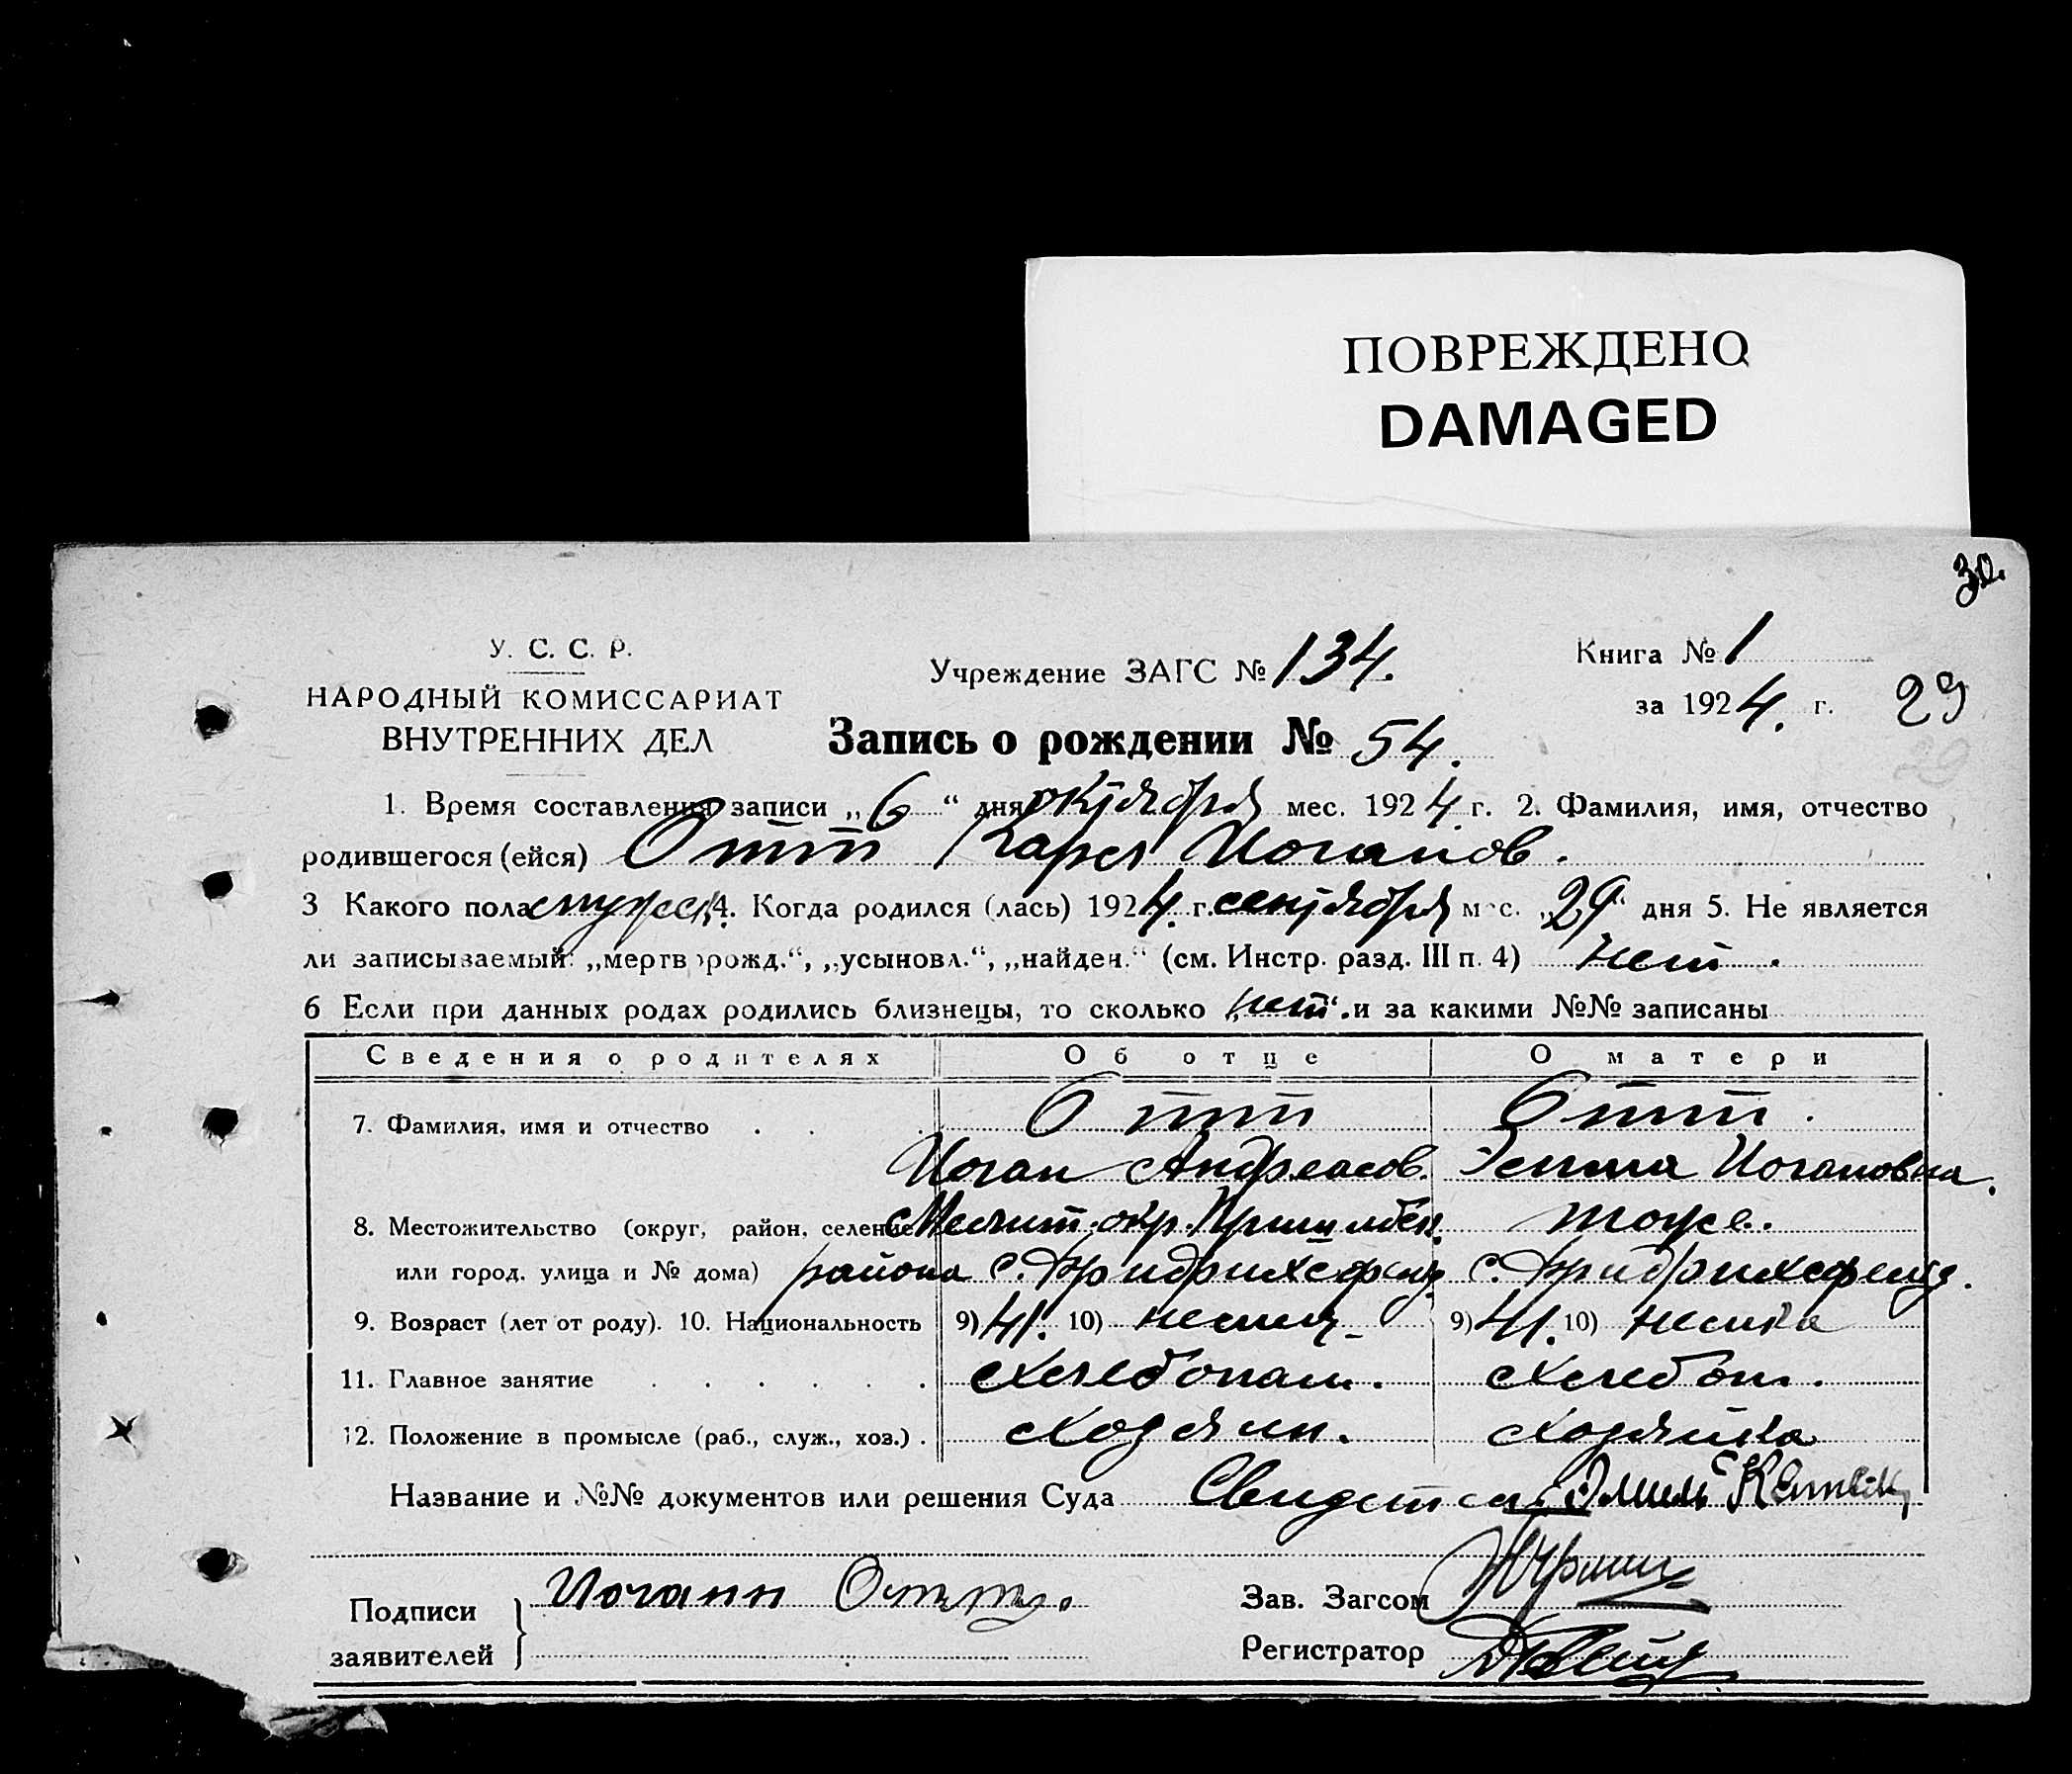 ПОВРЕЖДЕНО
DAMAGED
30.
У. С. С. Р.
НАРОДНЫЙ КОМИССАРИАТ
ВНУТРЕННИХ ДЕЛ
Учреждение ЗАГС № 134.
Книга № 1
за 1924. г.
29
Запись о рождении № 54.
1. Время составления записи „6“ дня октября мес. 1924 г. 2. Фамилия, имя, отчество
родившегося (ейся) Отт Карл Иоганов.
3 Какого пола мужск. 4. Когда родился (лась) 1924 г. сентября мес. „29“ дня 5. Не является
ли записываемый: „мертворожд.“, „усыновл.“, „найден.“ (см. Инстр. разд. III п. 4) нет.
6 Если при данных родах родились близнецы, то сколько „нет“. и за какими №№ записаны
Сведения о родителях Об отце О матери
7. Фамилия, имя и отчество . . . Отт Отт.
Иоган Андреасов. Эмма Иогановна.
8. Местожительство (округ, район, селение Мелит. окр. Пришибск. тоже.
или город, улица и № дома) района с. Фридрихсфельд с. Фридрихсфельд.
9. Возраст (лет от роду). 10. Национальность 9) 41. 10) немец 9) 41. 10) немка
11. Главное занятие . . . . . . Хлебопаш. Хлебоп.
12. Положение в промысле (раб., служ., хоз.) . Хозяин. Хозяйка
Название и №№ документов или решения Суда Свидетел. Эмиль
Подписи
заявителей } Иоганн Отт.
Зав. Загсом
Регистратор